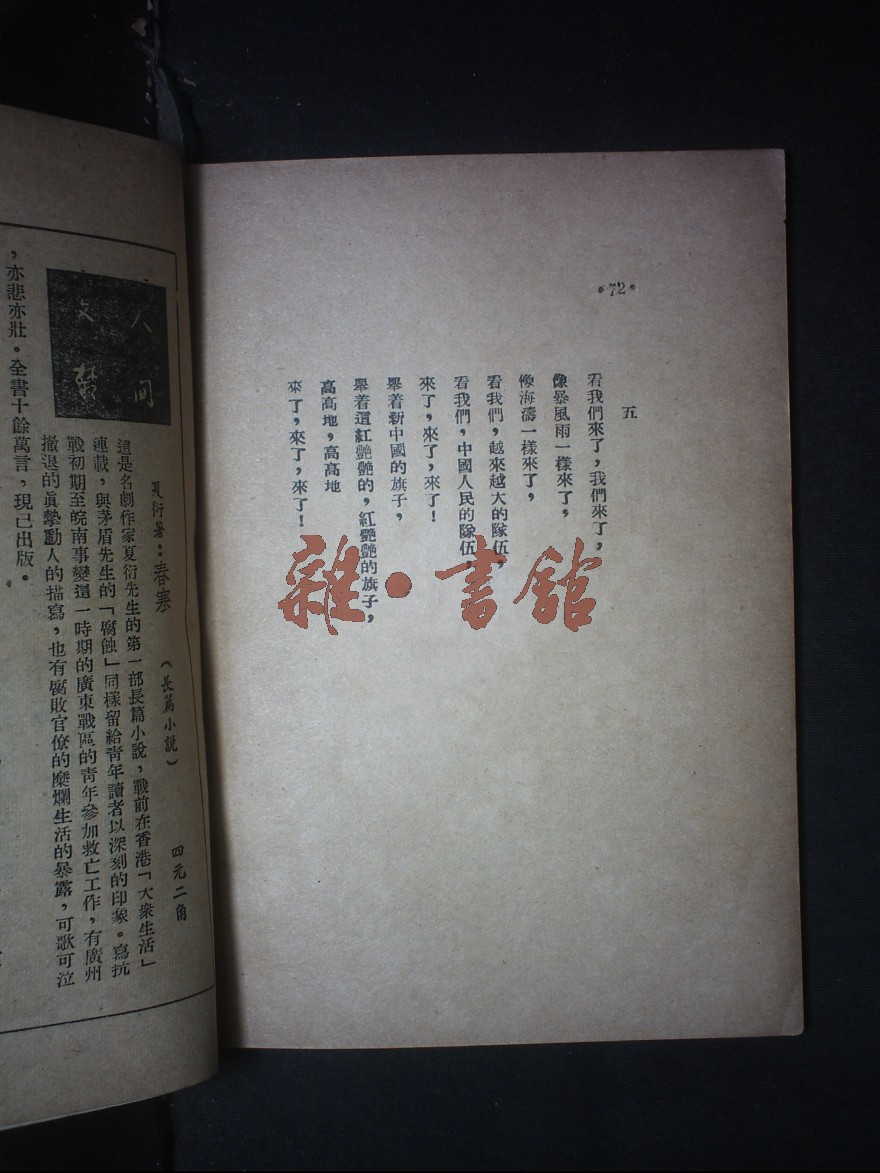 •72•
五
看我們來了，我們來了，
像暴風雨一樣來了，
像海濤一樣來了，
看我們，越來越大的隊伍，
看我們，中國人民的隊伍，
來了，來了，來了！
舉着新中國的旗子，
舉着這紅艷艷的，紅艷艷的旗子，
高高地，高高地
來了，來了，來了！
雜•書館
人間
文叢
夏衍著：春寒 （長篇小說） 四元二角
這是名劇作家夏衍先生的第一部長篇小說，戰前在香港「大衆生活」
連載，與茅盾先生的「腐蝕」同樣留給青年讀者以深刻的印象。寫抗
戰初期至皖南事變這一時期的廣東戰區的青年參加救亡工作，有廣州
撤退的眞摯動人的描寫，也有腐敗官僚的糜爛生活的暴露，可歌可泣
，亦悲亦壯。全書十餘萬言，現已出版。